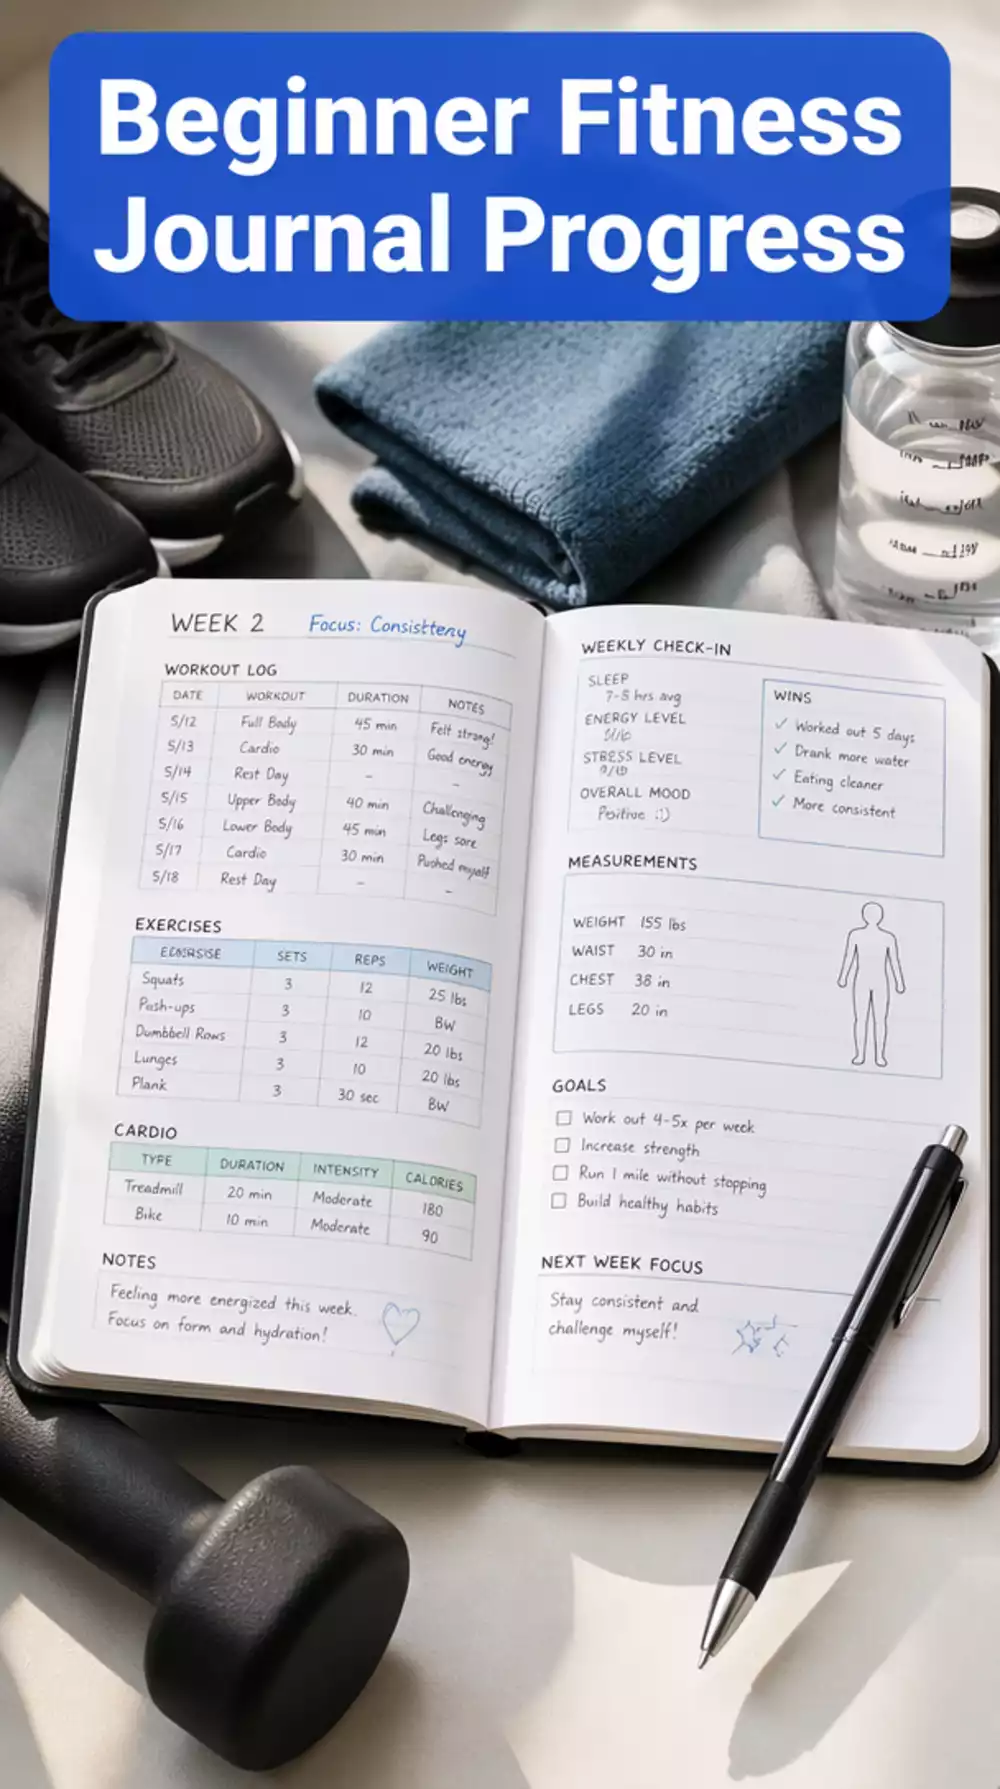 Beginner Fitness
Journal Progress
WEEK 2 Focus: Consistteny
WORKOUT LOG
DATE WORKOUT DURATION NOTES
5/12 Full Body 45 min Felt strong!
5/13 Cardio 30 min Good energy
5/14 Rest Day – –
5/15 Upper Body 40 min Challenging
5/16 Lower Body 45 min Legs sore
5/17 Cardio 30 min Pushed myself
5/18 Rest Day – –
EXERCISES
SETS REPS WEIGHT
Squats 3 12 25 lbs
Push-ups 3 10 BW
Dumbbell Rows 3 12 20 lbs
Lunges 3 10 20 lbs
Plank 3 30 sec BW
CARDIO
TYPE DURATION INTENSITY CALORIES
Treadmill 20 min Moderate 180
Bike 10 min Moderate 90
NOTES
Feeling more energized this week.
Focus on form and hydration!
WEEKLY CHECK-IN
SLEEP
7-8 hrs avg
ENERGY LEVEL
STRESS LEVEL
OVERALL MOOD
Positive :)
WINS
✓ Worked out 5 days
✓ Drank more water
✓ Eating cleaner
✓ More consistent
MEASUREMENTS
WEIGHT 155 lbs
WAIST 30 in
CHEST 38 in
LEGS 20 in
GOALS
☐ Work out 4-5x per week
☐ Increase strength
☐ Run 1 mile without stopping
☐ Build healthy habits
NEXT WEEK FOCUS
Stay consistent and
challenge myself!